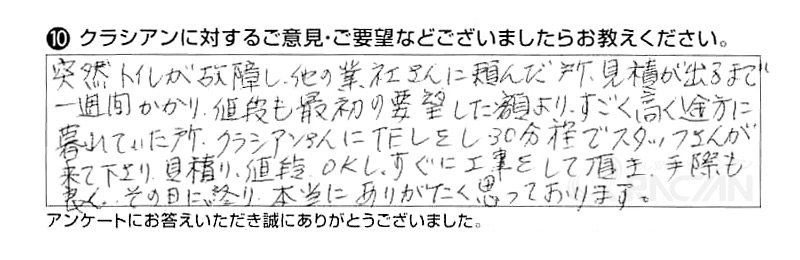 ⑩ クラシアンに対するご意見・ご要望などございましたらお教えください。
突然トイレが故障し、他の業社さんに頼んだ所、見積が出るまで
一週間かかり、値段も最初の要望した額より、すごく高く途方に
暮れていた所、クラシアンさんにTELをし30分程でスタッフさんが
来て下さり、見積り、値段、OKし、すぐに工事をして頂き、手際も
良く、その日に終り、本当にありがたく思っております。
アンケートにお答えいただき誠にありがとうございました。